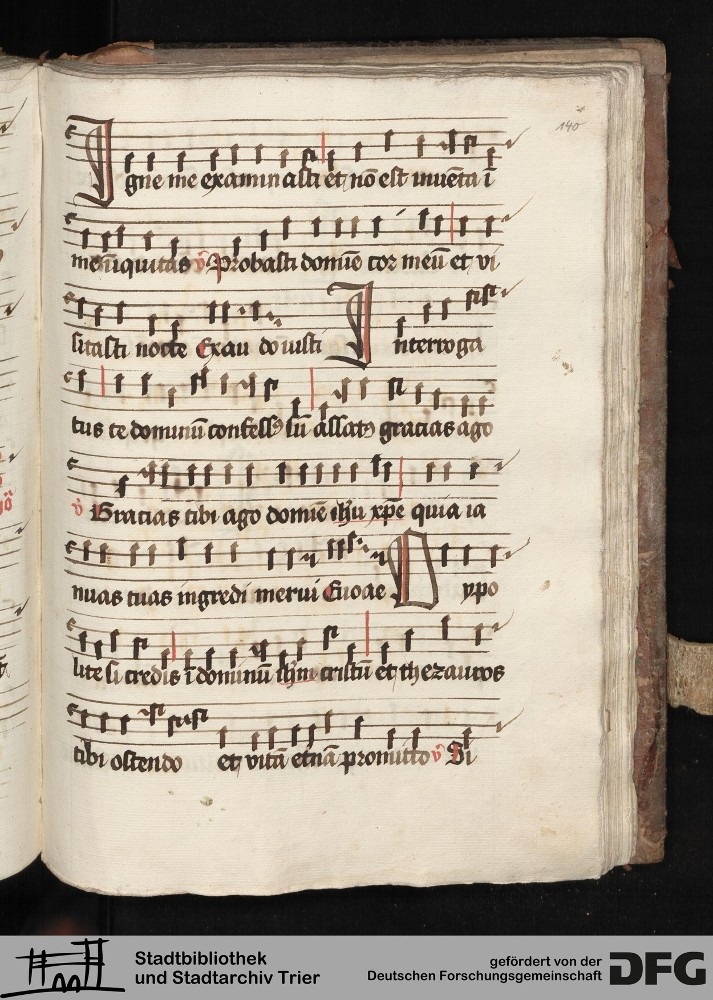 140
Igne me examinasti et nō est inuēta ī
me īiquitas v̊ Probasti domīe cor meū et vi
sitasti nocte Exau do iusti Interroga
tus te dominū confess₉ sū assat₉ gracias ago
v̊ Gracias tibi ago domīe ihū xp̄e quia ia
nuas tuas ingredi merui Euoae Ypo
lite si credis ī dominū ihm̄ cristū et thezauros
tibi ostendo et vitā etnā promitto v̊ Si
Stadtbibliothek
und Stadtarchiv Trier
gefördert von der
Deutschen Forschungsgemeinschaft
DFG